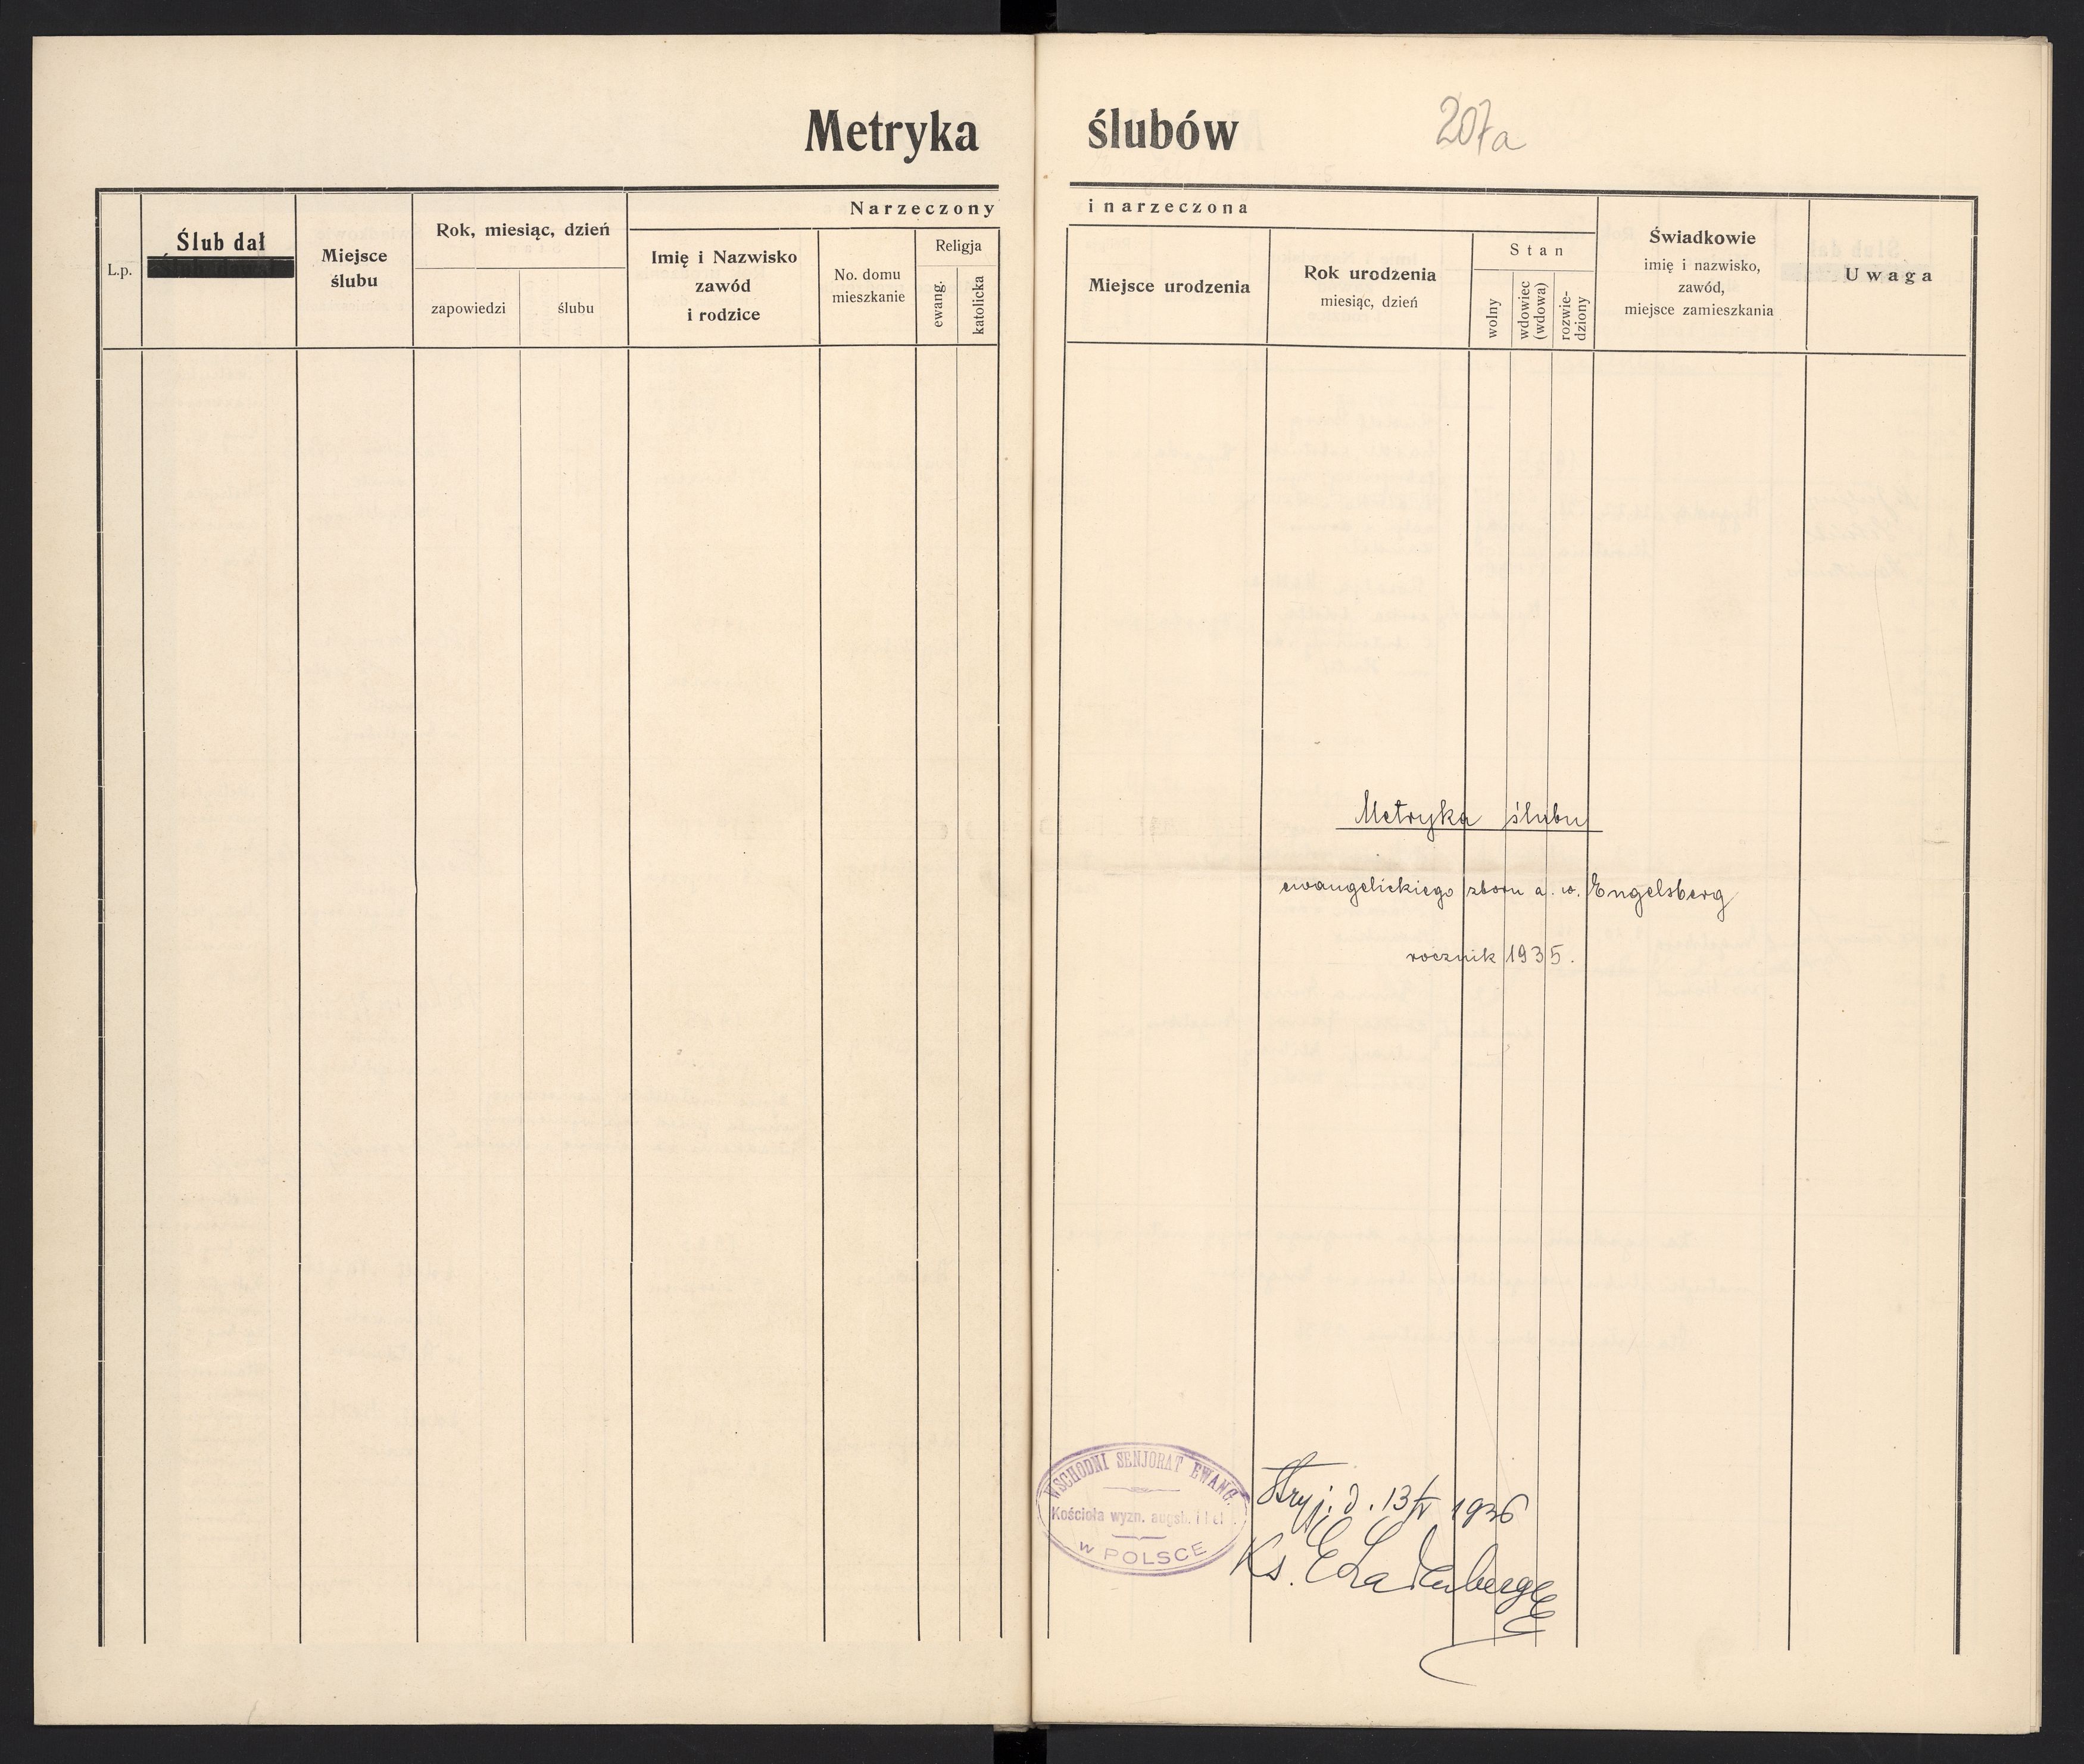 Metryka ślubów
207a
L.p.
Ślub dał
Miejsce
ślubu
Rok, miesiąc, dzień
zapowiedzi
ślubu
Narzeczony
Imię i Nazwisko
zawód
i rodzice
No. domu
mieszkanie
Religja
ewang.
katolicka
i narzeczona
Miejsce urodzenia
Rok urodzenia
miesiąc, dzień
Stan
wolny
wdowiec
(wdowa)
rozwie-
dziony
Świadkowie
imię i nazwisko,
zawód,
miejsce zamieszkania
Uwaga
Metryka ślubu
ewangelickiego zboru a. w. Engelsberg
rocznik 1935.
WSCHODNI SENJORAT EWANG.
Kościoła wyzn. augsb. i
w POLSCE
Stryj. d. 13/IV 1936
Ks. E Ladenberger